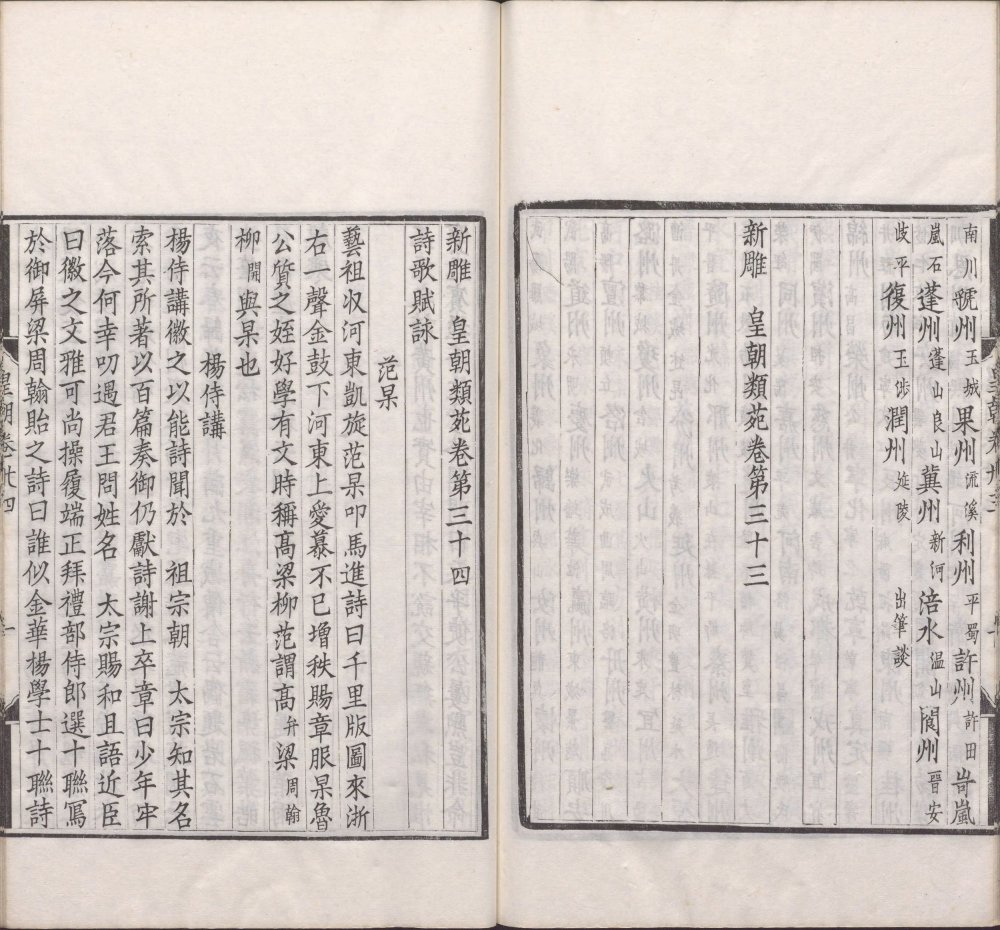 南川虢州玉城果州流溪利州平蜀許州許田岢嵐
嵐石蓬州蓬山良山冀州新河涪水温山閬州晉安
歧平復州玉沙潤州延陵　出筆談
新雕　皇朝類苑卷第三十三
新雕　皇朝類苑卷第三十四
詩歌賦詠
范杲
藝祖収河東凱旋范杲叩馬進詩曰千里版圖來浙
右一聲金鼓下河東上愛慕不已增秩賜章服杲魯
公質之姪好學有文時稱高梁柳范謂高弁梁周翰
柳開與杲也
楊侍講
楊侍講徽之以能詩聞於　祖宗朝　太宗知其名
索其所著以百篇奏御仍獻詩謝上卒章曰少年牢
落今何幸叨遇君王問姓名　太宗賜和且語近臣
曰徽之文雅可尚操履端正拜禮部侍郎選十聯寫
於御屏梁周翰貽之詩曰誰似金華楊學士十聯詩
皇朝卷卅四